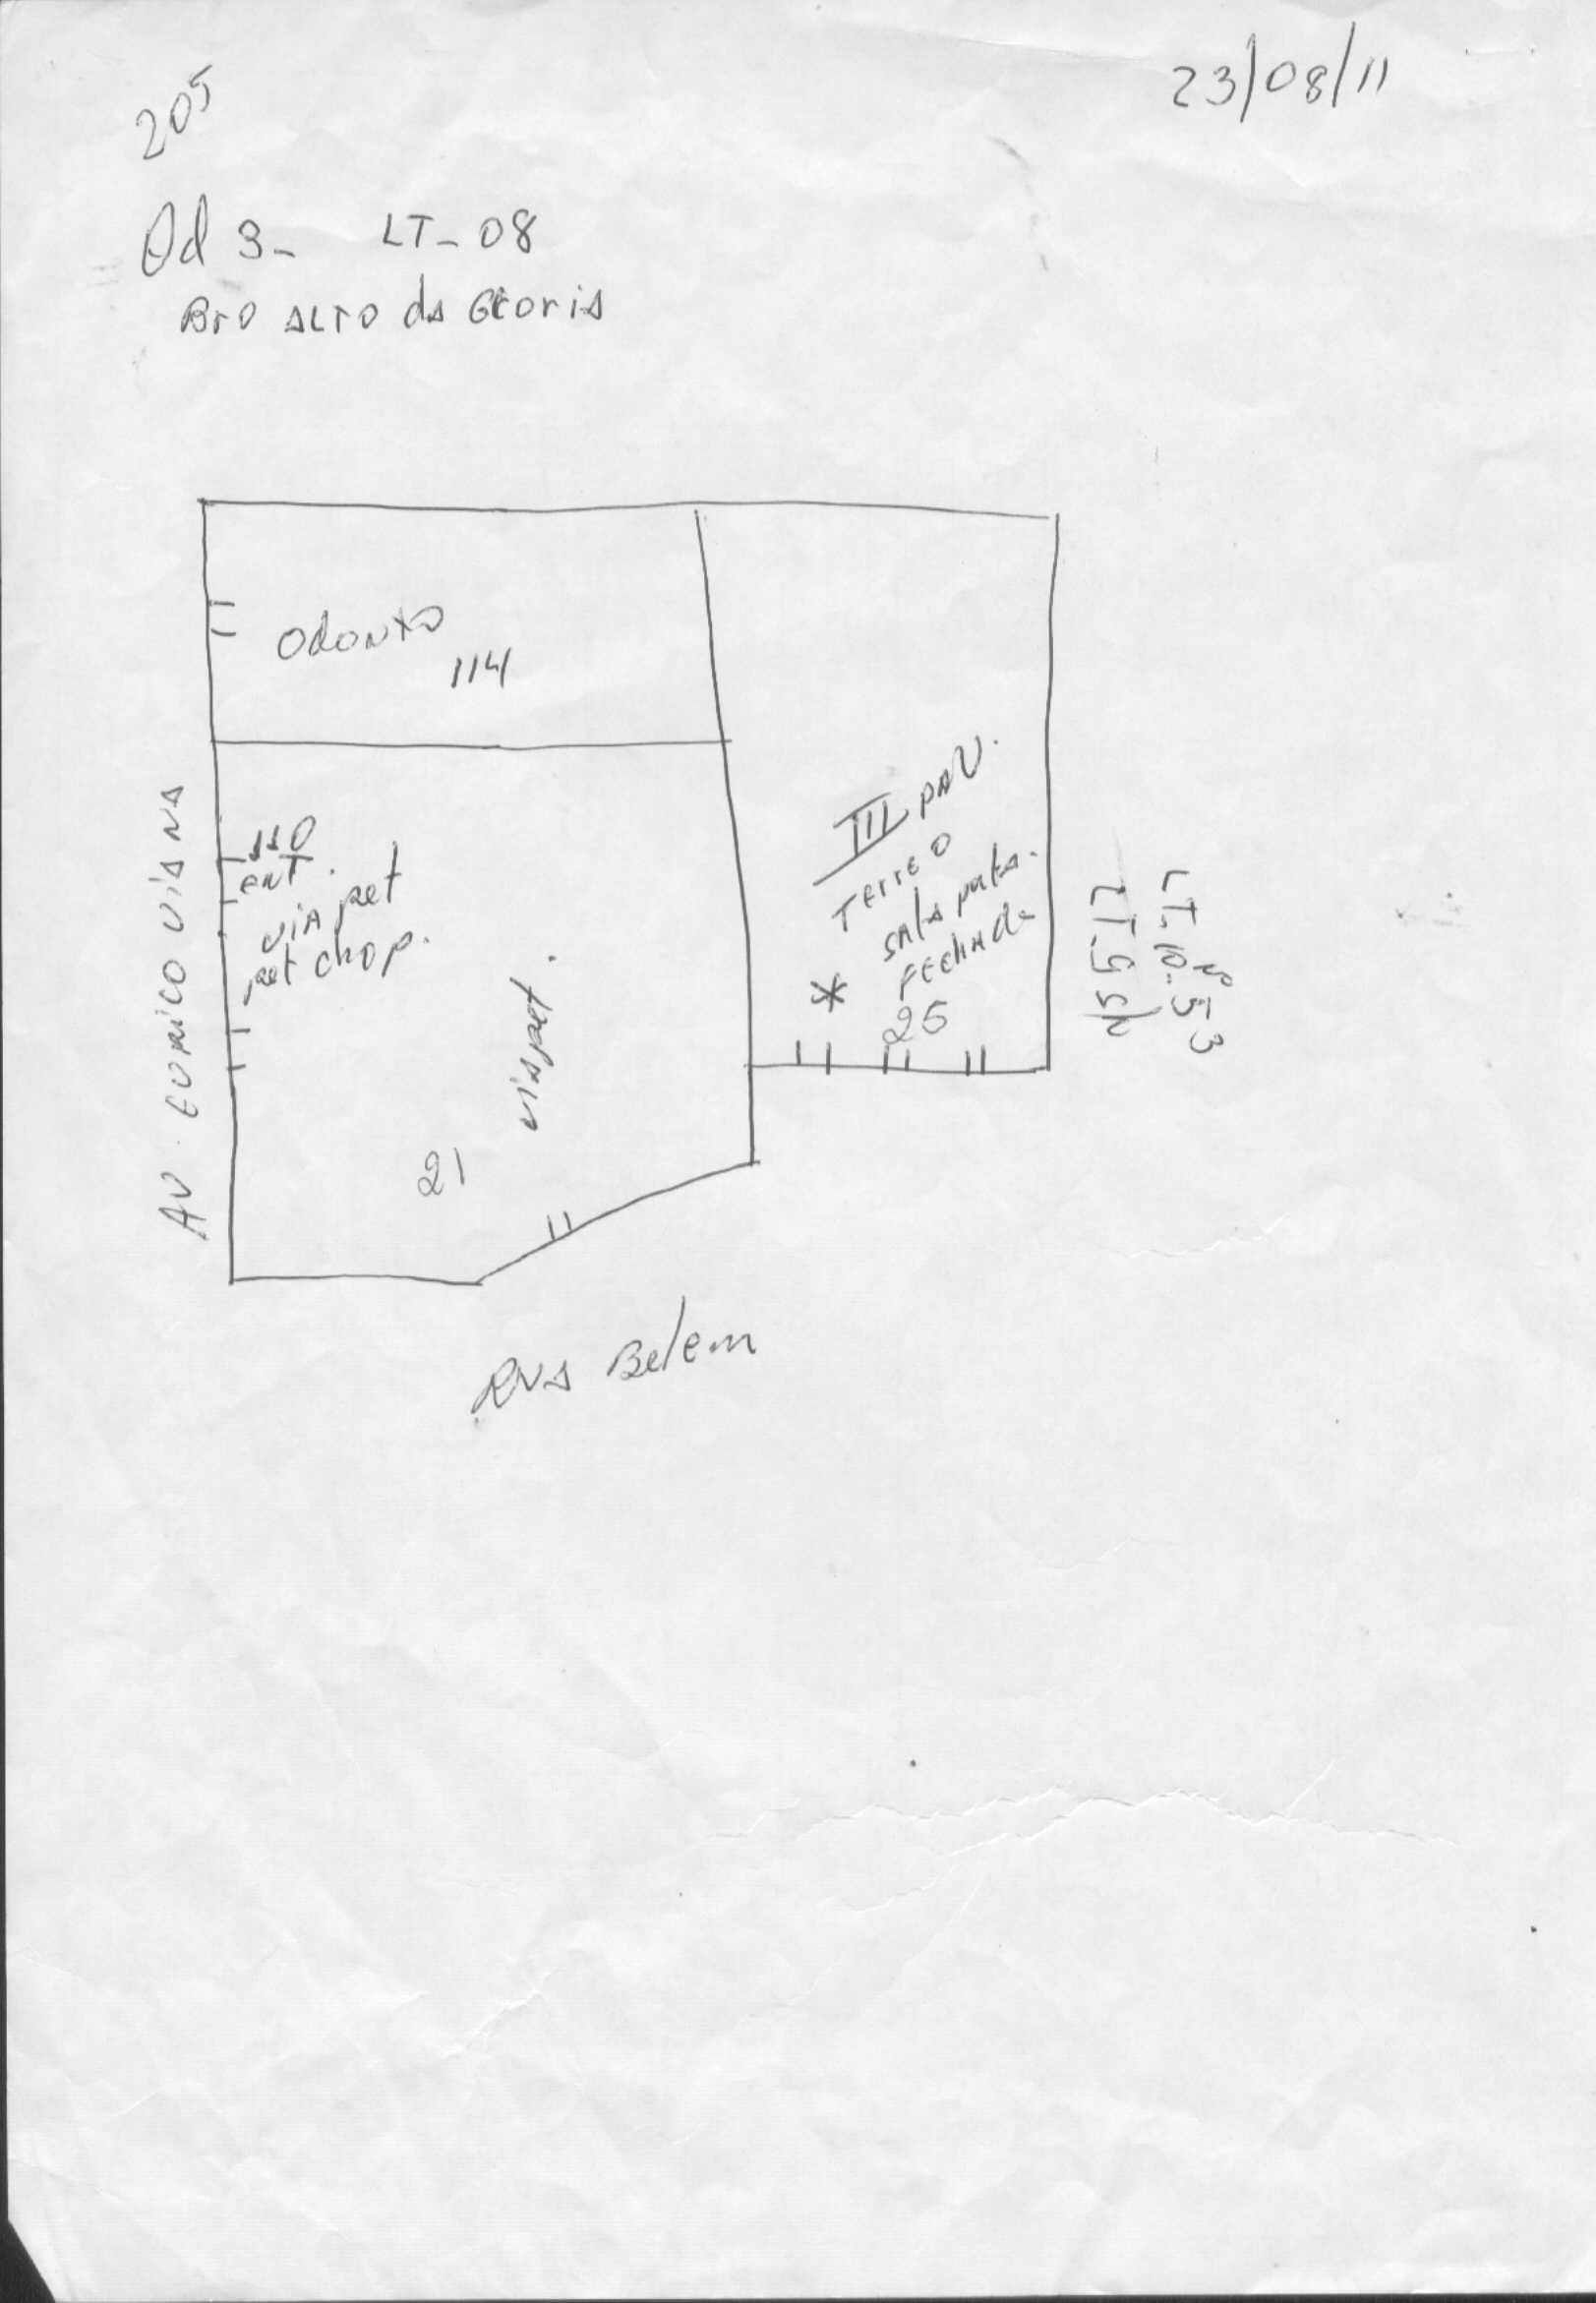 205
23/08/11
Qd 3- LT- 08
Bro ALTO da Gloria
Odonto
114
110
ENT.
via pet
pet chop.
viapet.
21
III PAV.
Terreo
sala
Fechada
*
25
LT. 10. Nº 53
LT. 9 SN
AV. EURICO VIANA
RUA Belem